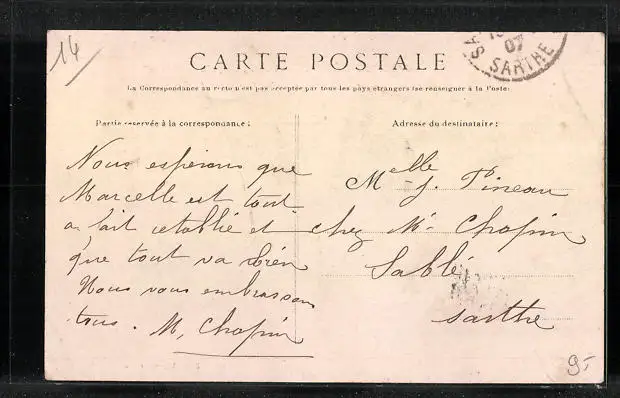 14
07
SARTHE
CARTE POSTALE
La Correspondance au recto n'est pas acceptée par tous les pays étrangers (se renseigner à la Poste)
Partie réservée à la correspondance:
Nous espérons que
Marcelle est tout
a fait rétablie et
que tout va bien
Nous vous embrassons
tous. M. Chopin
Adresse du destinataire:
Melle J. Pineau
chez Mr Chopin
Sablé
Sarthe
9-